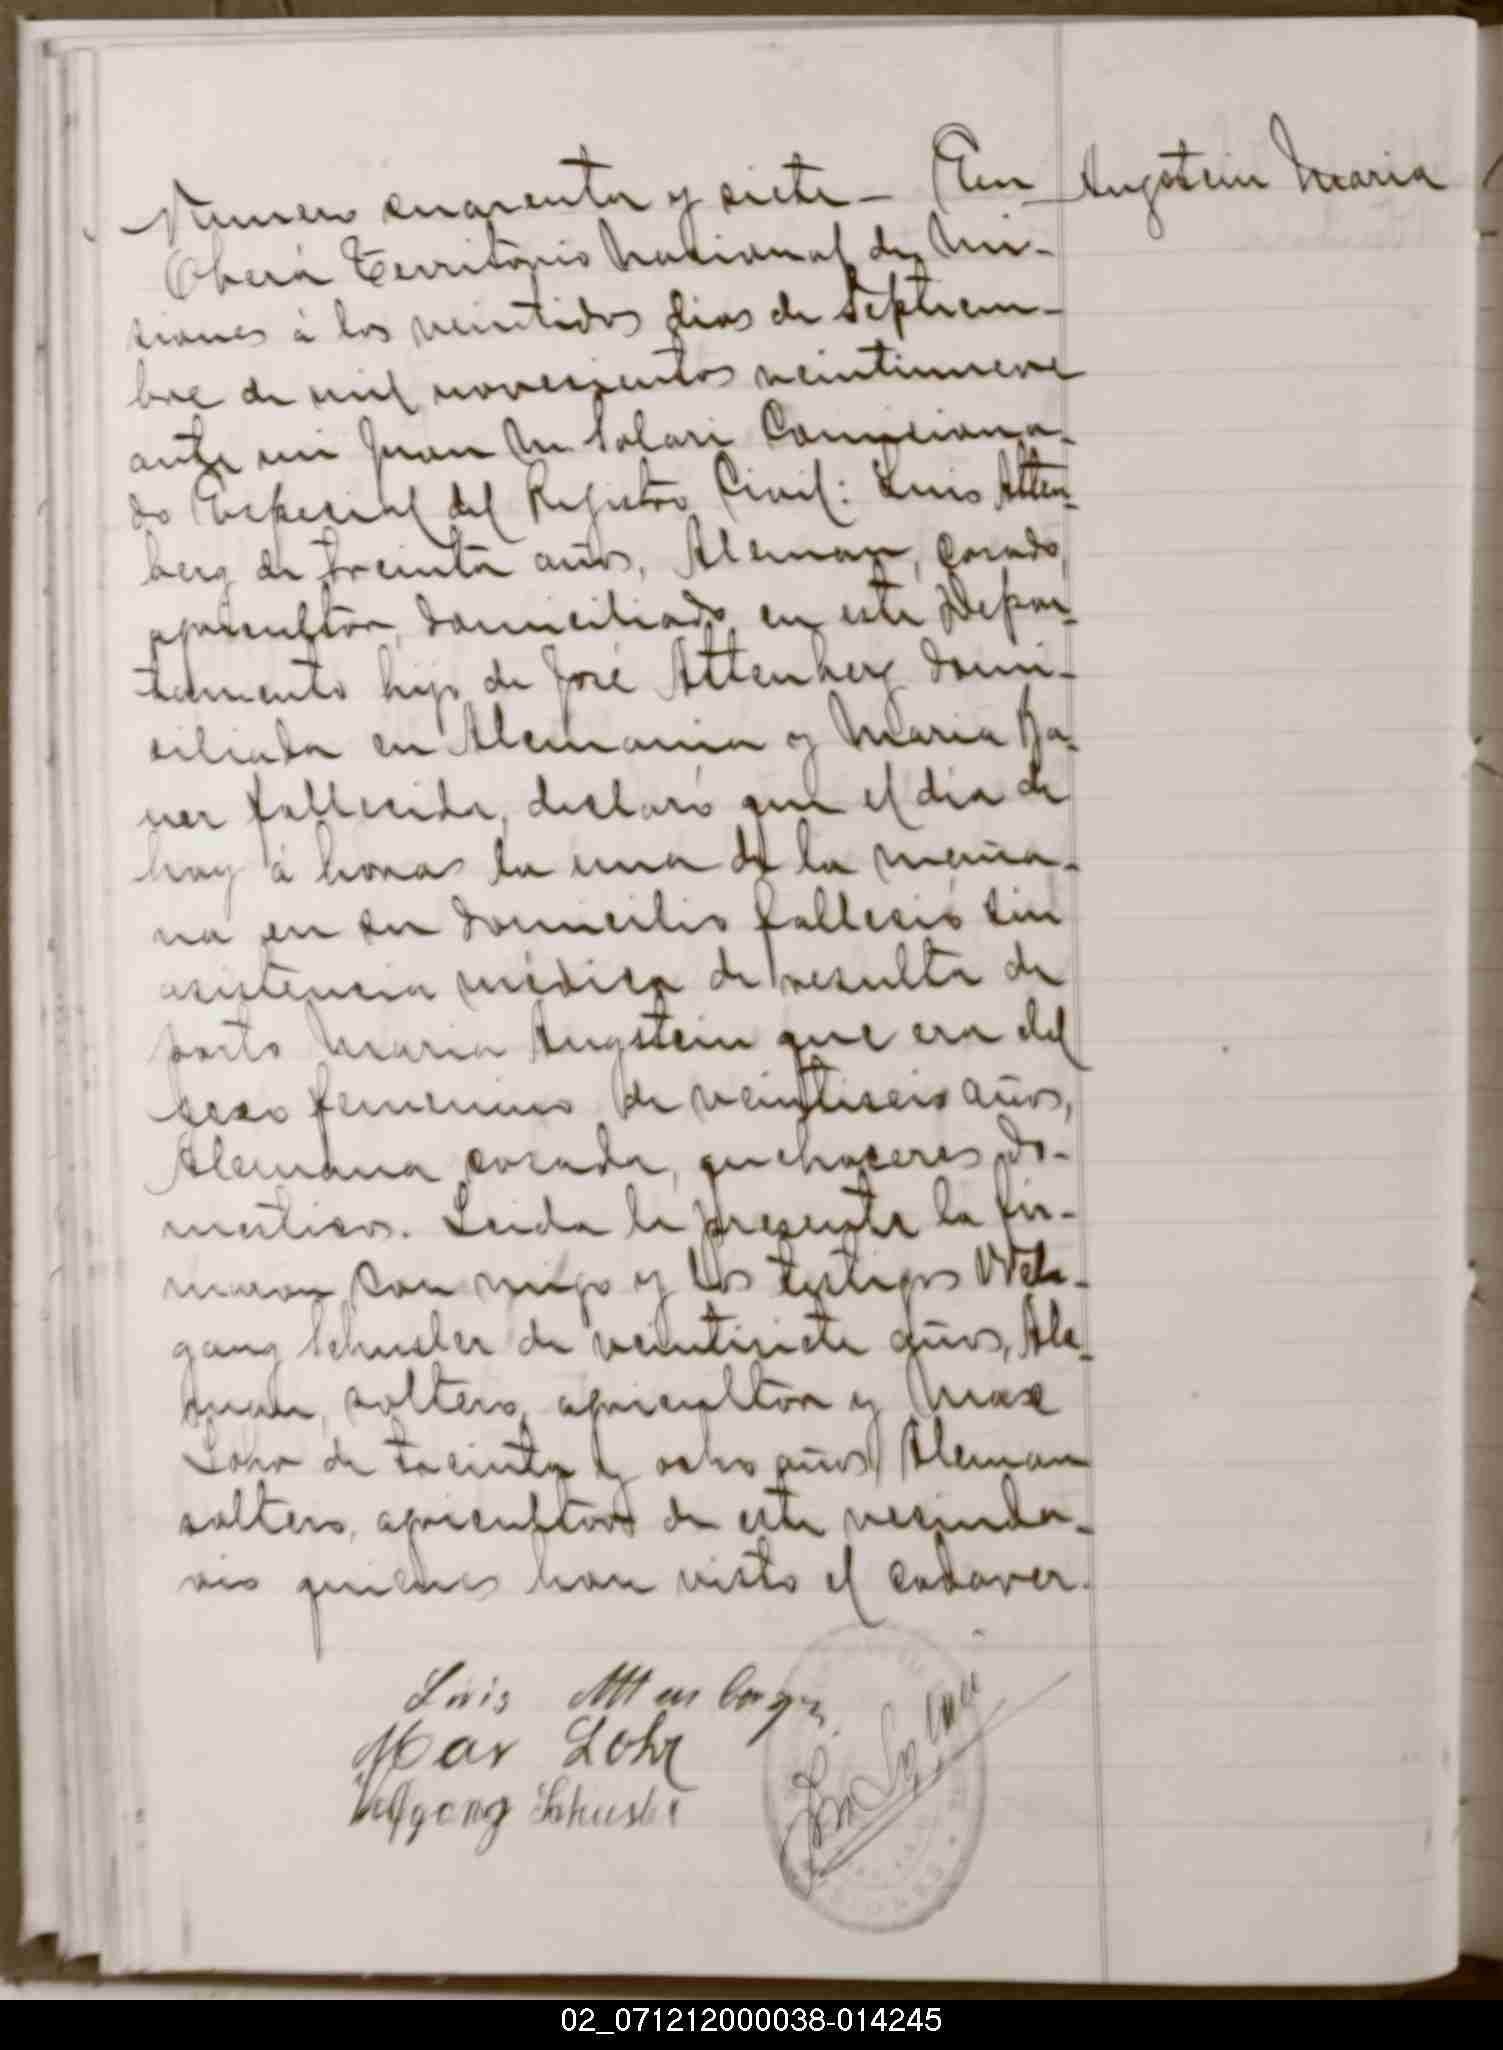 Numero cuarenta y siete – En Augstein Maria
Oberá Territorio Nacional de Mi-
siones á los veintidos dias de Septiem-
bre de mil novesientos veintinueve
ante mi Juan M. Solari Comisiona-
do Especial del Registro Civil: Luis Atten-
berg de treinta años, Aleman, casado,
agricultor, domiciliado en este Depar-
tamento hijo de José Attenberg domi-
siliado en Alemania y Maria Ba-
uer fallecida, declaró que el dia de
hoy á horas la una de la maña-
na en su domicilio fallesió sin
asistencia médica de resulta de
parto Maria Augstein que era del
sexo femenino de veintiseis años,
Alemana, casada, quehaseres do-
mesticos. Leida la presente la fir-
maron con migo y los testigos Wol-
gang Schusler de veintisiete años, Ale-
man, soltero, agricultor y Max
Lohr de treinta y ocho años Aleman
soltero, agricultor de este vesinda-
rio quienes han visto el cadaver.
Luis Attenberger
Max Lohr
Wolfgang Schusler
02_071212000038-014245